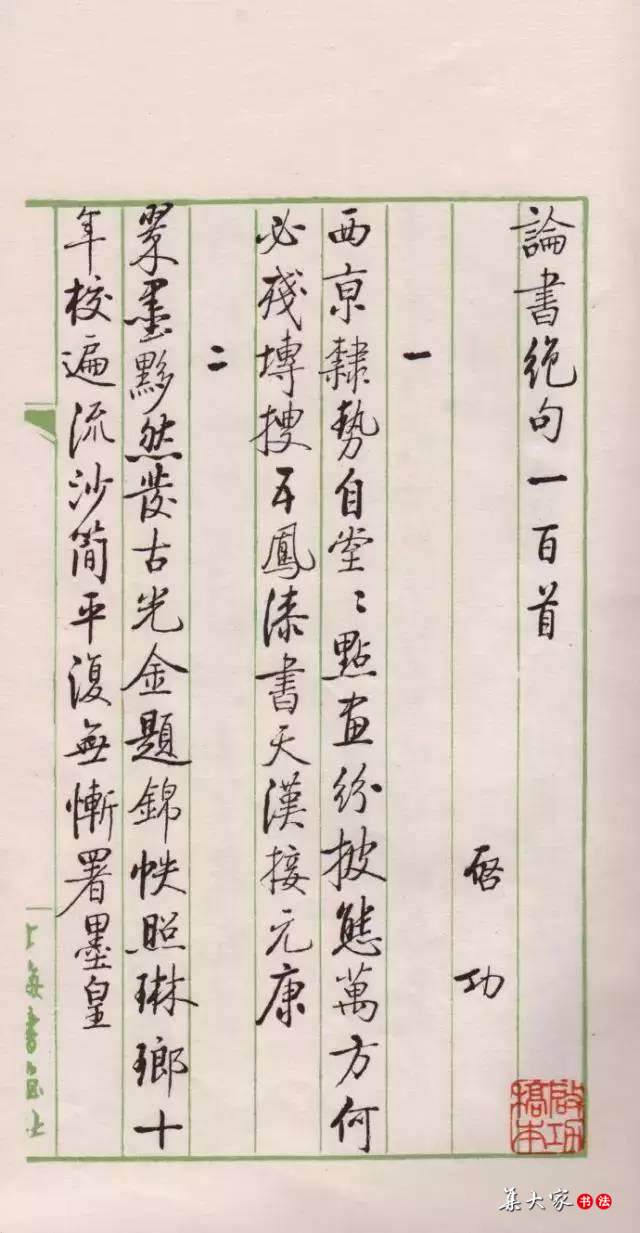 論書絕句一百首
啓功
一
西京隸勢自堂〻點畫紛披態萬方何
必殘塼搜五鳳漆書天漢接元康
二
翠墨黟然發古光金題錦帙照琳瑯十
年校遍流沙簡平復無慚署墨皇
啟功稿本
上海書畫社
集大家书法